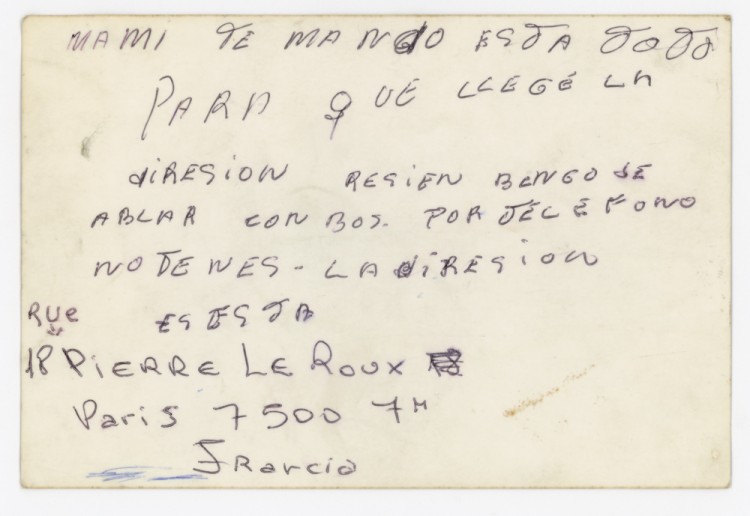 MAMI TE MANDO ESTA TOTO
PARA QUE LLEGÉ LA
DIRESION RESIEN BENGO DE
ABLAR CON BOS. POR TÉLÉFONO
NO TENES - LA DIRESION
RUE ES ESTA
18 PIERRE LE ROUX
Paris 7500 7M
FRancia